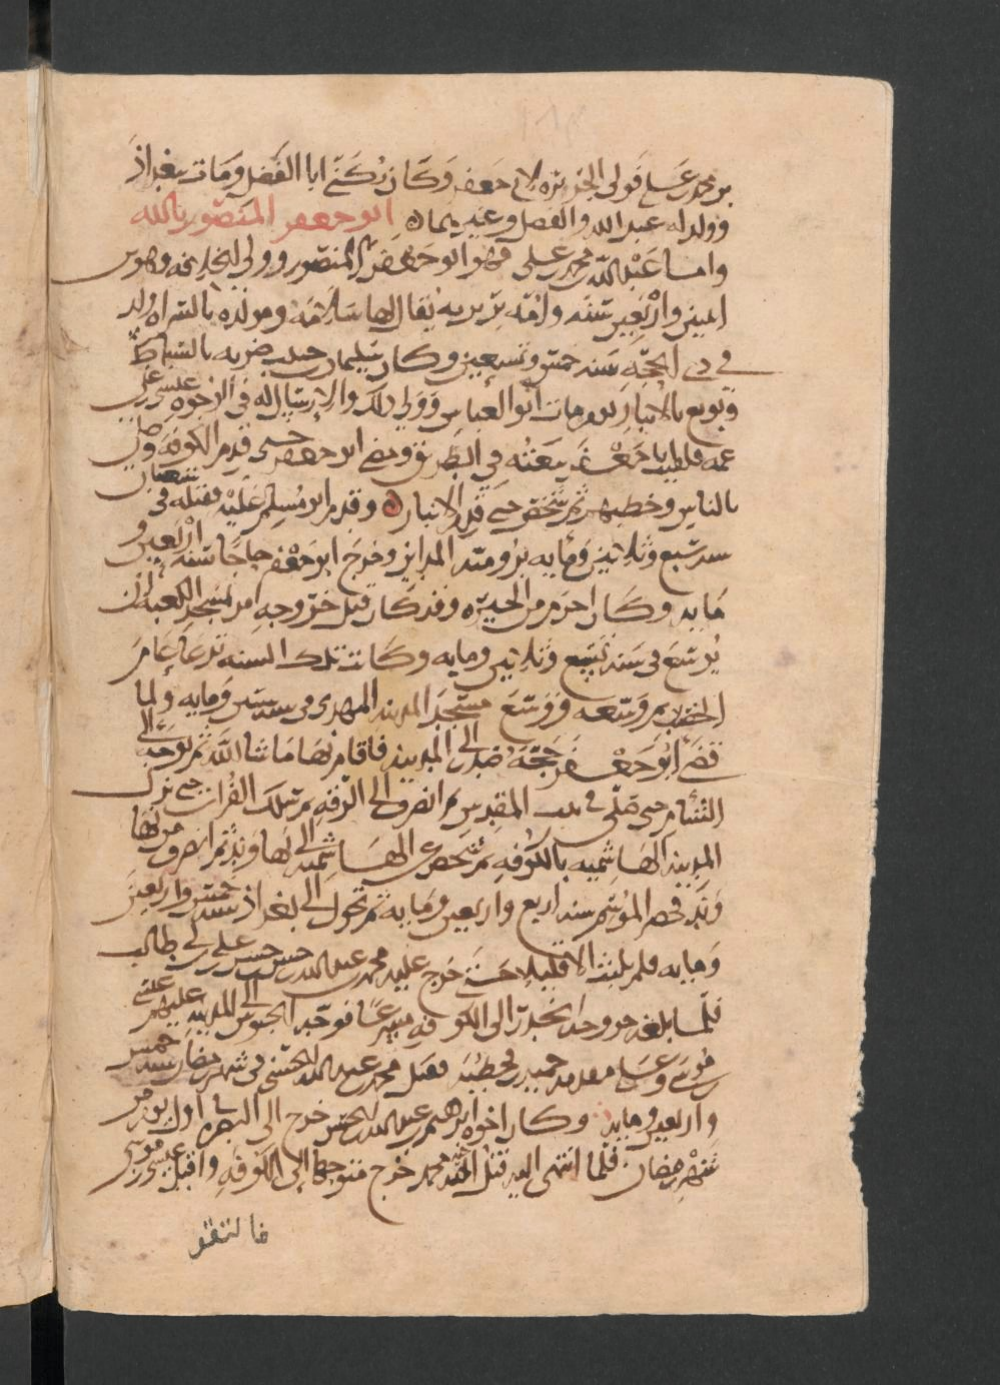 بن محمد بن علي فولي الجزيرة لابي جعفر وكان يكنى ابا الفضل ومات ببغداذ
وولد له عبد الله والفضل وغيرهما ه ابو جعفر المنصور بالله
واما عبد الله بن محمد بن علي فهو ابو جعفر المنصور وولي الخلافة وهو بن
اثنين واربعين سنه وامه بربريه يقال لها سلامه ومولده بالشراه ولد
في ذي الحجه سنه خمس وتسعين وكان سليمن بن حبيب ضربه بالسياط
وبويع بالانبار يوم مات ابو العباس وولي ذلك والارسال له في الوجوه عيسى بن علي
عمه فلقيت ابا جعفر بيعته في الطريق ومضى ابو جعفر حتى قدم الكوفه وصلى
بالناس وخطبهم ثم شخص حتى قدم الانبار ه وقدم ابو مسلم عليه فقتله في شعبان
سنه سبع وثلاثين ومايه برومية المداين وخرج ابو جعفر حاجا سنه اربعين و
مايه وكان احرم من الحيره وقد كان قبل خروجه امر بمسجد الكعبه ان
يوسع في سنه تسع وثلاثين ومايه وكانت تلك السنه تدعا عام
الخصب ثم وسعه ووسع مسجد المدينه المهدي في سنه ستين ومايه ولما
قضى ابو جعفر حجه صدر الى المدينه فاقام بها ما شا الله ثم توجه الى
الشام حتى صلى في بيت المقدس ثم انصرف الى الرقه ثم سلك الفرات حتى نزل
المدينه الهاشميه بالكوفه ثم شخص عن الهاشميه الى نهاوند ثم انصرف من نها
وند فحضر الموسم سنه اربع واربعين ومايه ثم تحول الى بغداذ سنه خمس واربعين
ومايه فلم يلبث الا قليلا حتى خرج عليه محمد بن عبد الله بن حسن بن حسن بن علي بن ابي طالب
فلما بلغه خروجه انحدر الى الكوفه مسرعا فوجه الجيوش الى المدينه عليهم عيسى
بن موسى وعلى مقدمته حميد بن قحطبه فقتل محمد بن عبد الله بن الحسن في شهر رمضان سنه خمس
واربعين ومايه وكان اخوه ابرهيم بن عبد الله بن الحسن خرج الى البصره في اول يوم من
شهر رمضان فلما انتهى اليه قتل اخيه محمد خرج متوجها الى الكوفه واقبل عيسى بن موسى
فالتقو